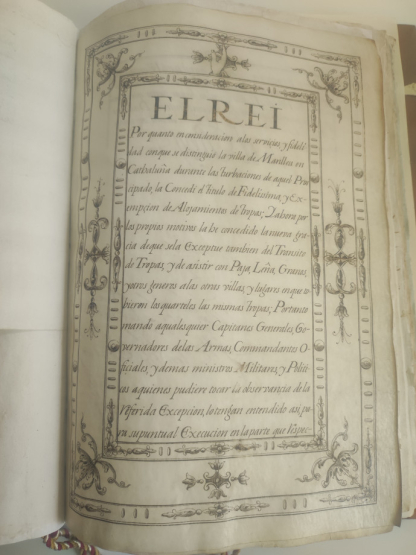 EL REI
Por quanto en consideracion a los servicios y fideli-
dad con que se distinguio la villa de Manlleu en
Cathaluña durante las turbaciones de aquel Prin-
cipado, la Concedi el titulo de Fidelissima, y Ex-
empcion de Alojamientos de tropas; Y ahora por
los propios motivos la he concedido la nueva gra-
cia de que sea Exceptue tambien del Transito
de Tropas, y de asistir con Paja, Leña, Granos,
y otros generos a las otras villas, y lugares en que tu-
bieren los quarteles las mismas tropas; Portanto
mando a qualesquier Capitanes Generales, Go-
vernadores de las Armas, Commandantes O-
ficiales, y demas ministros Militares, y Politi-
cos a quienes pudiere tocar la observancia de la
referida Excepcion, lo tengan entendido asi, pa-
ra su puntual Execucion en la parte que respec-